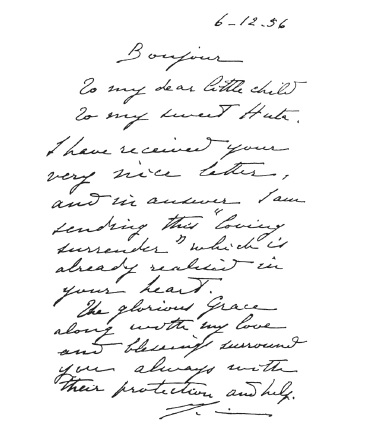 6-12-56
Bonjour
To my dear little child
To my sweet Huta.
I have received your
very nice letter,
and in answer I am
sending this "loving
surrender" which is
already realised in
your heart.
The glorious Grace
along with my love
and blessings surround
you always with
their protection and help.